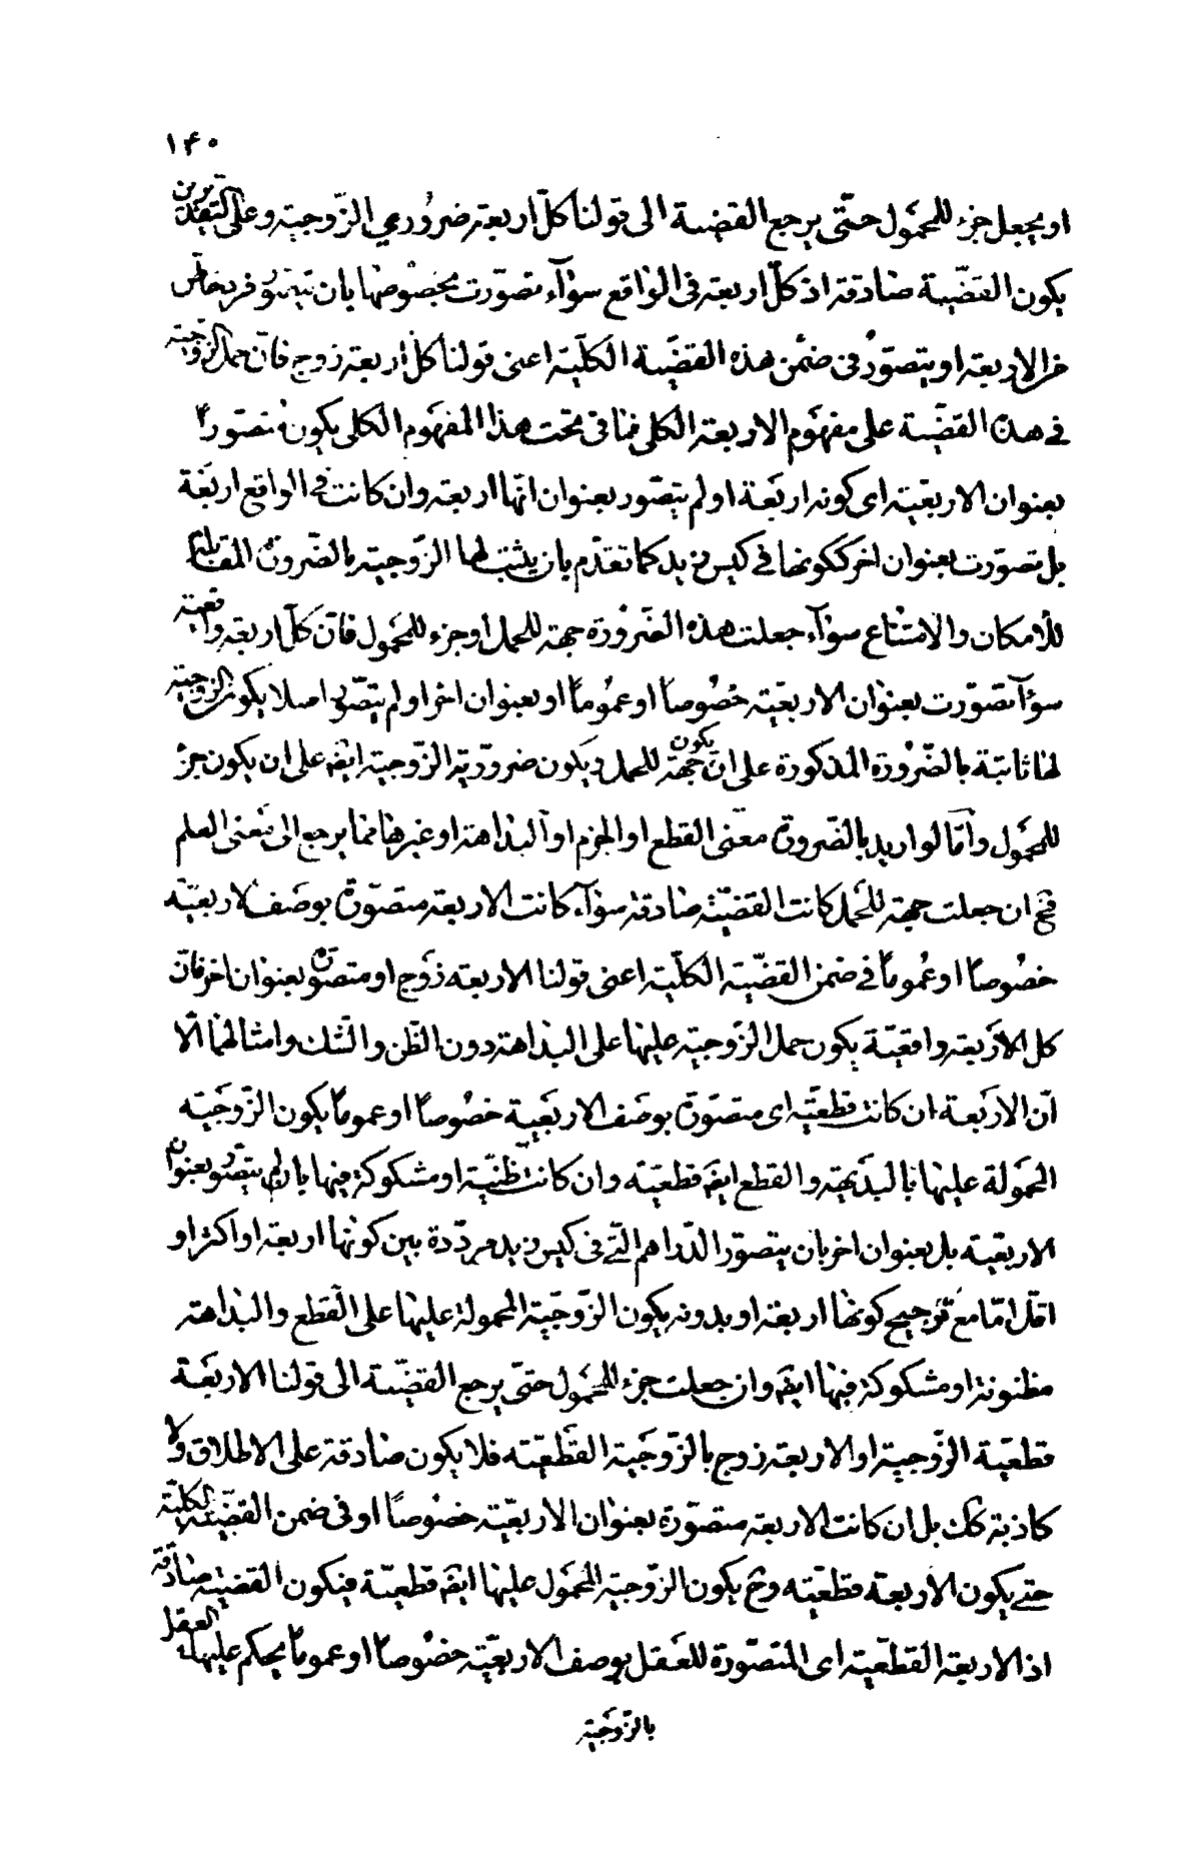 ١۴٠
او يجعل جزء للمحمول حتّى يرجع القضية الى قولنا كلّ اربعة ضروري الزّوجية وعلى التقديرين
يكون القضّية صادقة اذ كلّ اربعة فى الواقع سوٰآء تصوّرت بخصُوصها بان يتصوّر فرد خاصّ
من الاربعة او يتصوّر فى ضمن هذه القضيّة الكلّية اعنى قولنا كلّ اربعة زوج فانّ حمل الزّوجية
فى هذه القضّية على مفهوم الاربعة الكلى فما فى تحت هذا المفهوم الكلى يكون متصوّراً
بعنوان الاربعيّة اى كونه اربَعة او لم يتصّور بعنوان انّها اربعة وان كانت فى الواقع اربَعَة
بل تصوّرت بعنوان اخر ككونها فى كيس زيد كما تقدّم بان يثبت لها الزّوجية بالضّرورة المقابلة
للامكان والامتناع سوٰآء جعلت هذه الضّرورة جهة للحمل او جزء للمحمُول فانّ كلّ اربعة واقعية
سوٰآء تصوّرت بعنوٰان الاربعيّة خصُوصاً او عمُوماً او بعنوان اخر او لم يتصّور اصلا يكون الزّوجية
لها ثابتة بالضّرورة المذكورة على ان يكون جهة للحمل ويكون ضروريّة الزّوجية ايضَ على ان يكون جزءً
للمحمُول وامّا لو اريد بالضّرورة معنى القطع او الجزم او البداهة او غيرها مما يرجع الى معنى العلم
فح ان جعلت جهة للحمل كانت القضيّة صادقة سوٰآء كانت الاربعة متصوّرة بوصَف الاربعيّة
خصُوصاً او عمُوماً فى ضمن القضّية الكلّية اعنى قولنا الاربعة زَوج او متصوّرة بعنوان اخر فانّ
كل الاربعة واقعيّة يكون حمل الزّوجية عليها على البداهة دون الظّن والشّك وامثالهما الّا
انّ الاربَعة ان كانت قطعيّة اى متصَوّرة بوصَف الاربَعيّة خصُوصاً او عموماً يكون الزّوجيّة
المحمَولة عليها بالبدَيهة والقطع ايضَ قطعيّة وان كانت ظنيّة او مشكوكة فيها بان لم يتصّور بعنوان
الاربعيّة بل بعنوان اخر بان يتصوّر الدّراهم الّتى فى كيس زيد مردّدة بين كونها اربعة او اكثر او
اقلّ امّا مع ترجيح كونها اربعة او بدونه يكون الزّوجيّة المحمولة عليها على القطع والبداهة
مظنونة او مشكوكة فيها ايضَ وان جعلت جزء للمحمُول حتى يرجع القضيّة الى قولنا الاربَعة
قطعيّة الزّوجية او الاربعة زوج بالزّوجَية القطعيّة فلا يكون صادقة على الاطلاق ولا
كاذبة كك بل ان كانت الاربعة متصوّرة بعنوٰان الاربعّية خصُوصاً او فى ضمن القضّية الكلّية
حتى يكون الاربعة قطعيّة وح يكون الزّوجية المحمُول عليها ايضَ قطعيّة فيكون القضيّة صادقة
اذ الاربعة القطعيّة اى المتصّورة للعَقل بوصف الاربعيّة خصُوصاً او عموماً يحكم عليها العقل
بالزّوجَية